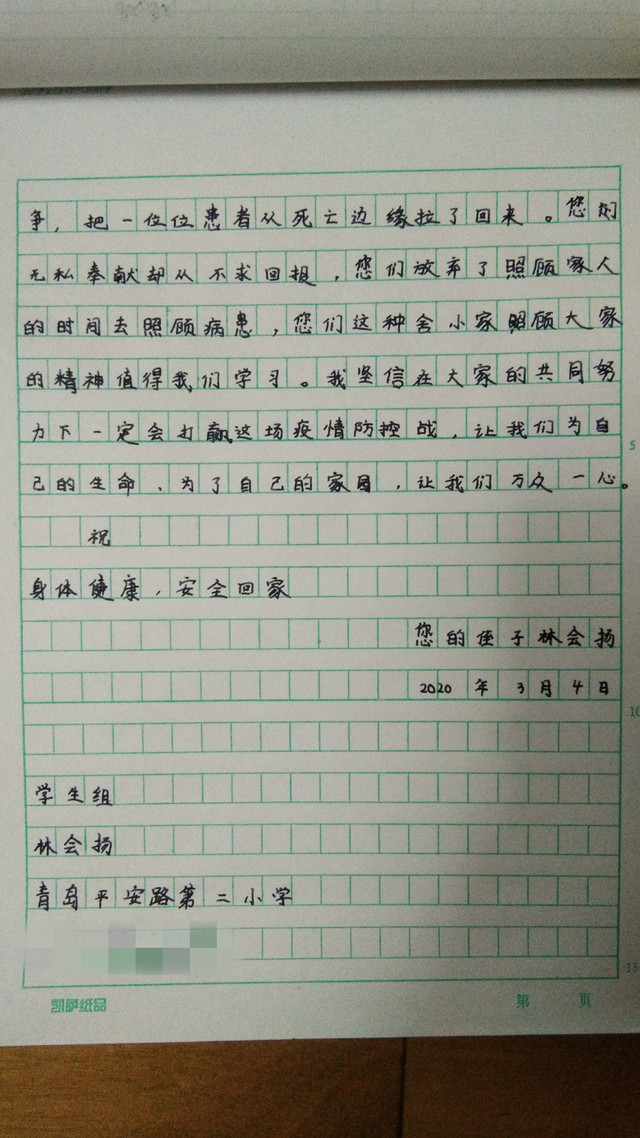 争，把一位位患者从死亡边缘拉了回来。您们
无私奉献却从不求回报，您们放弃了照顾家人
的时间去照顾病患，您们这种舍小家照顾大家
的精神值得我们学习。我坚信在大家的共同努
力下一定会打赢这场疫情防控战，让我们为自
5
己的生命、为了自己的家园，让我们万众一心。
祝
身体健康，安全回家
您的侄子林会扬
2020年3月4日
10
学生组
林会扬
青岛平安路第二小学
15
凯萨纸品 第 页